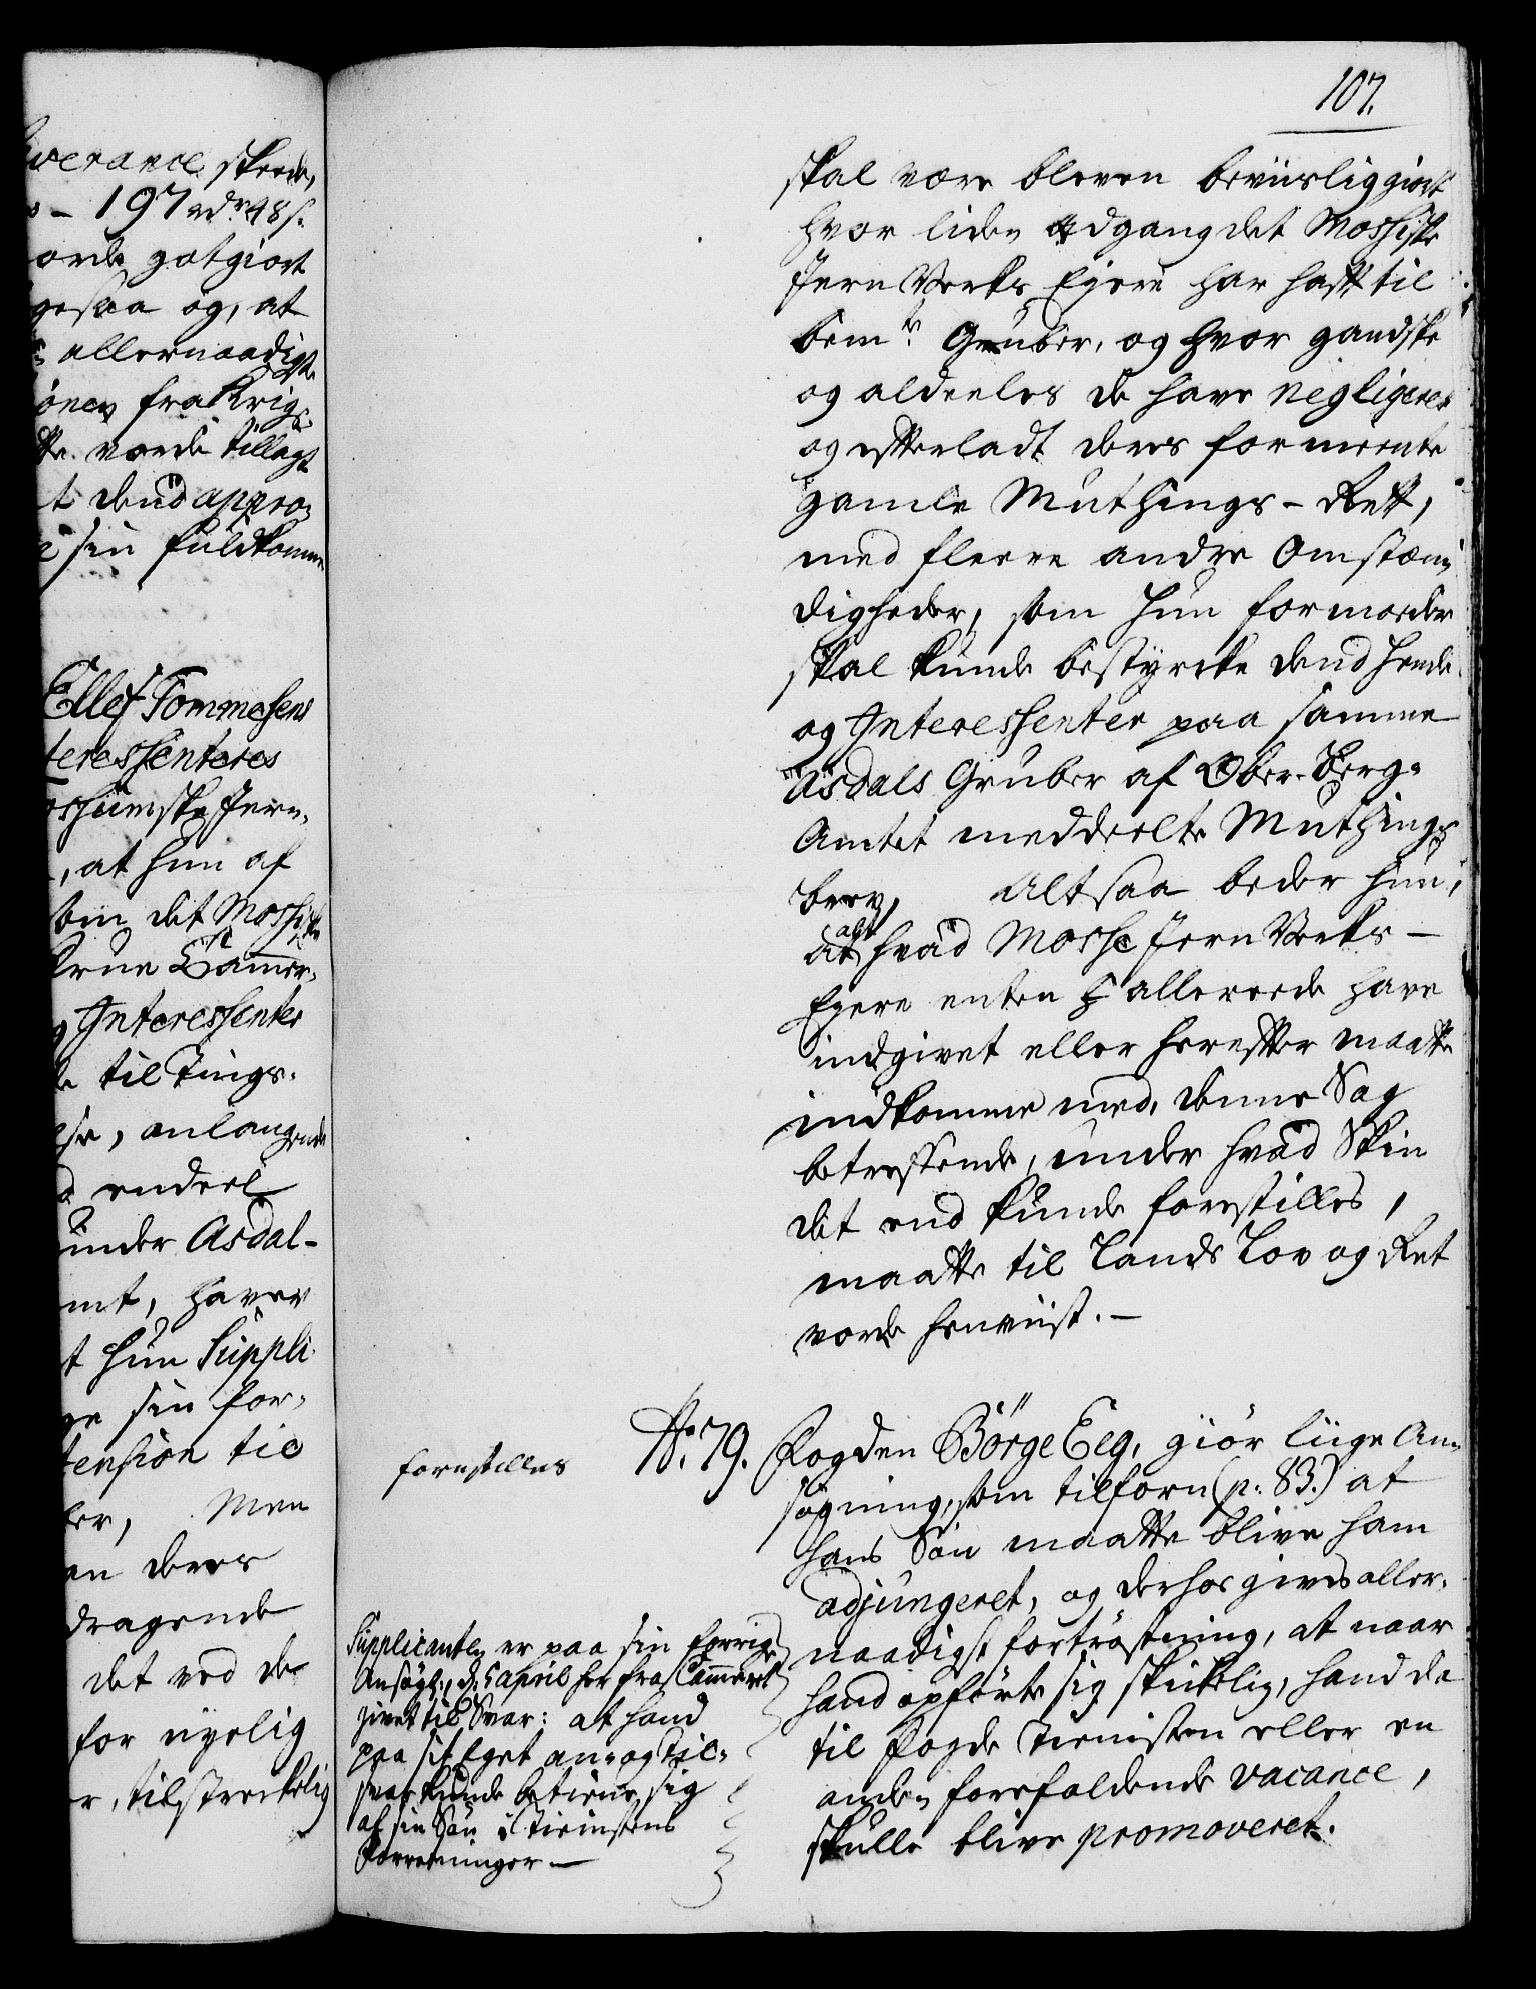 verance skeede,
197 rdr 48 s.
orde gotgiort
gesaa og, at
allernaadigste
onen fra Krigs
tte vorde tillagt
t dend appro=
sin fuldkomme
Ellef Tommesens
teressenteres
ssumske Jern=
, at hun af
som det Mossiske
Frue Cammer=
og Interessenter
de til Tings=
else, anlangende
endeel
under Asdal-
mt, haver
t hun Suppli=
ge sin for=
tension til
ber, Men
en deres
dragende
det ved de
for nyelig
r, tilstreckelig
107.
skal være bleven beviisliggiort
hvor liden Adgang det Mossiske
Jern Verks Ejere har hafft til
bemte Gruber, og hvor gandske
og aldeeles de have negligeret
og efterladt deres formeente
gamle Muthings-Rett,
med fleere andre Omstæn=
digheder, som hun formeder
skal kunde bestyrcke dend hende
og Interessenter paa samme
Asdals Gruber af Ober-Berg=
Amtet meddeelte Muthings
brev, Altsaa beder hun,
At alt hvad Mosse Jern Verks
Ejere enten allereede have
indgivet eller herefter maatte
indkomme med, denne Sag
betreffende, under hvad Skin
det end kunde forestilles,
maatte til Lands Lov og Ret
vorde henviist.-
forestilles
No. 79. Fogden Börge Eeg, giör liige An=
sögning, som tilforn (p. 83.) at
hans Sön maatte blive ham
adjungeret, og derhos gives aller=
naadigst fortröstning, at naar
hand opförte sig skikelig, hand da
til Fogde Tienisten eller en
anden forefaldende vacance,
skulle blive promoveret.
Supplicanten er paa sin forrige
Ansögn: d. 5 April her fra Cammeret
givet til Svar: at hand
paa sit Eget an= og Til=
svar kunde betiene sig
af sin Sön i Tienistens
Forretninger.-